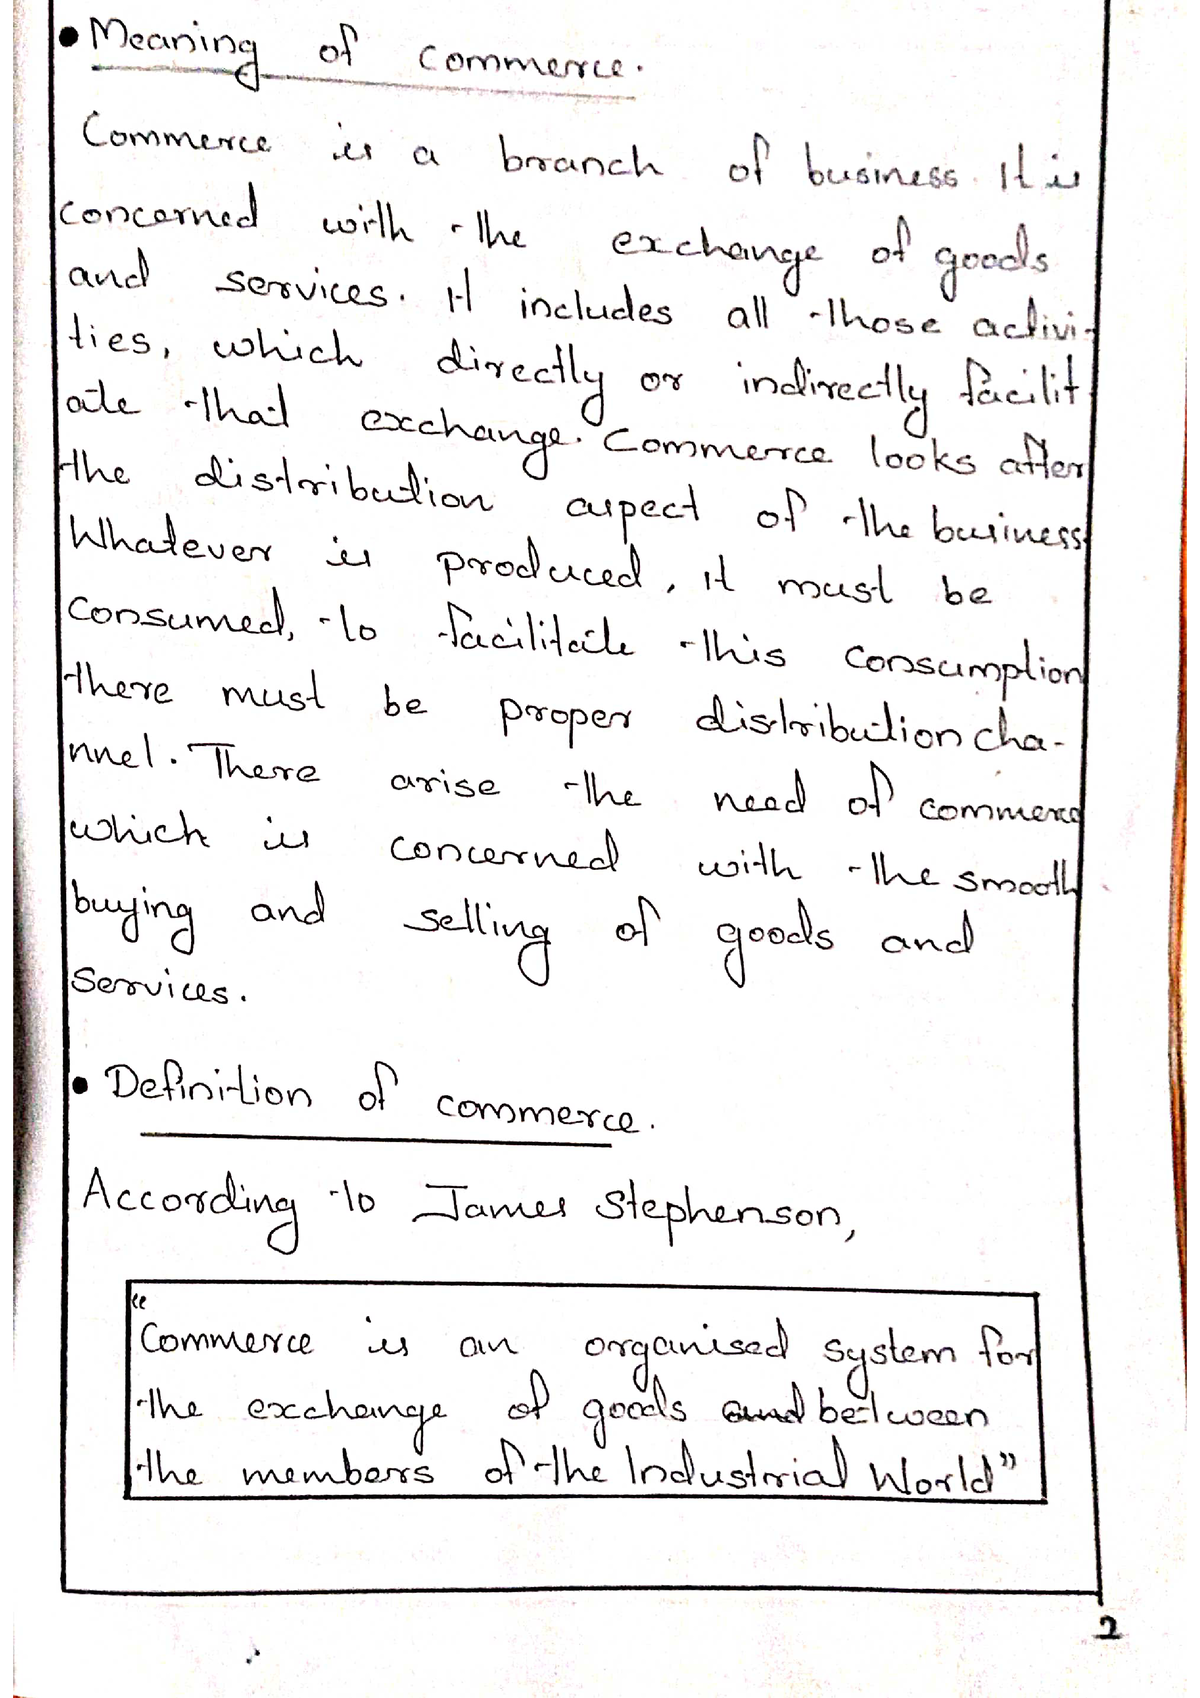 • Meaning of commerce.
Commerce is a branch of business. It is
concerned with the exchange of goods
and services. It includes all those activi-
ties, which directly or indirectly facilit-
ate that exchange. Commerce looks after
the distribution aspect of the business
Whatever is produced, it must be
consumed, to facilitate this consumption
there must be proper distribution cha-
nnel. There arise the need of commerce
which is concerned with the smooth
buying and selling of goods and
services.
• Definition of commerce.
According to James Stephenson,
“
Commerce is an organised system for
the exchange of goods and between
the members of the Industrial World”
2